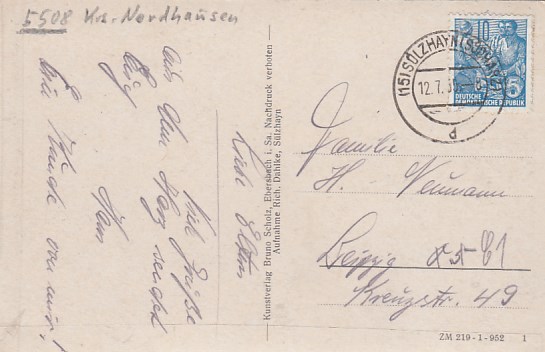 5508 Krs. Nordhausen
Liebe Eltern
Viele Grüße
aus dem Harz sendet
Euch
Hans
Kunstverlag Bruno Scholz, Ebersbach i. Sa. Nachdruck verboten
Aufnahme Rich. Dahlke, Sülzhayn
(15) SÜLZHAYN (SÜDHARZ)
12.7.
d
DEUTSCHE
DEMOKRATISCHE REPUBLIK
5
Familie
H. Neumann
Leipzig C1
Kreuzstr. 49
ZM 219-1-952 1